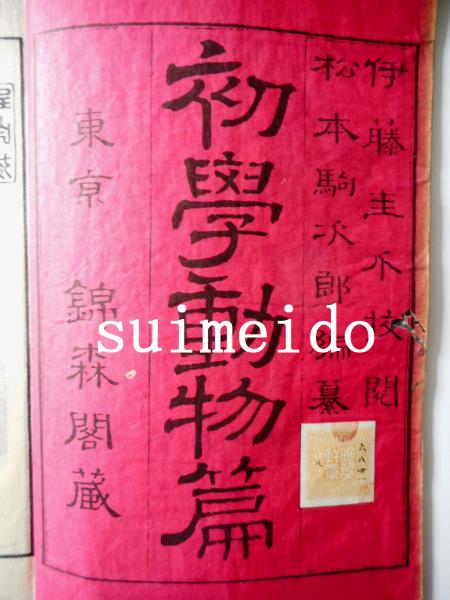 伊藤圭介校閲
松本駒次郎編纂
初學動物篇
東京 錦森閣蔵
suimeido